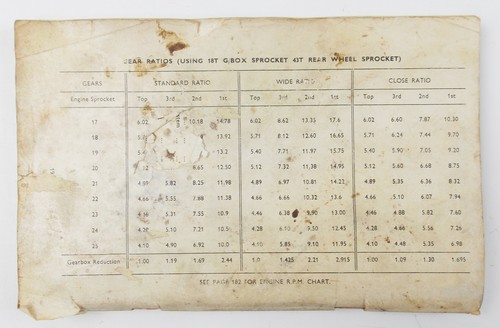 GEAR RATIOS (USING 18T G/BOX SPROCKET 43T REAR WHEEL SPROCKET)
GEARS STANDARD RATIO WIDE RATIO CLOSE RATIO
Engine Sprocket Top 3rd 2nd 1st Top 3rd 2nd 1st Top 3rd 2nd 1st
17 6.02 10.18 14.78 6.02 8.62 13.35 17.6 6.02 6.60 7.87 10.30
18 5.71 13.92 5.71 8.12 12.60 16.65 5.71 6.24 7.44 9.70
19 5.40 13.2 5.40 7.71 11.97 15.75 5.40 5.90 7.05 9.20
20 4.65 12.50 5.12 7.32 11.38 14.95 5.12 5.60 6.68 8.75
21 4.89 5.82 8.25 11.98 4.89 6.97 10.81 14.22 4.89 5.35 6.36 8.32
22 4.66 5.55 7.88 11.38 4.66 6.66 10.32 13.6 4.66 5.10 6.07 7.94
23 5.31 7.55 10.9 4.46 6.38 9.90 13.00 4.46 4.88 5.82 7.60
24 5.10 7.21 10.5 4.28 6.10 9.50 12.45 4.28 4.66 5.56 7.26
25 4.10 4.90 6.92 10.0 4.10 5.85 9.10 11.95 4.10 4.48 5.35 6.98
Gearbox Reduction 1.00 1.19 1.69 2.44 1.0 1.425 2.21 2.915 1.00 1.09 1.30 1.695
SEE PAGE 182 FOR ENGINE R.P.M. CHART.